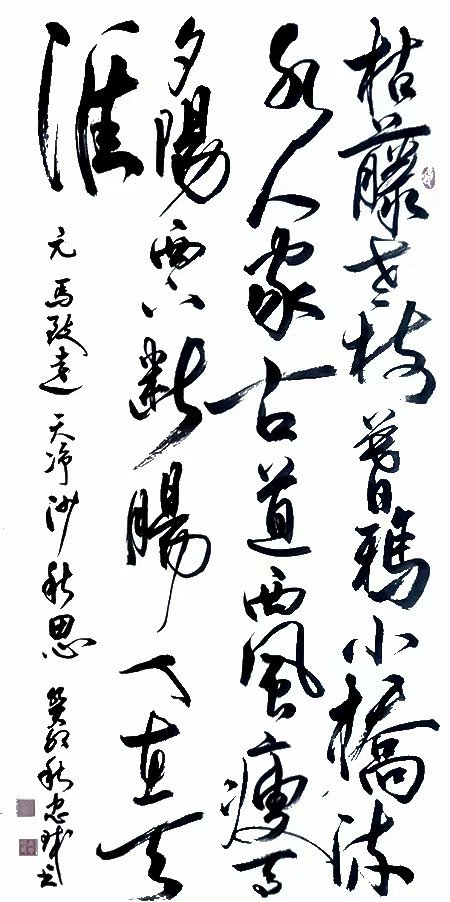 枯藤老樹昏鴉小橋流
水人家古道西風瘦馬
夕陽西下断腸人在天
涯
元 馬致遠 天净沙 秋思 癸卯秋忠